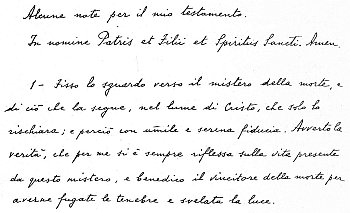 Alcune note per il mio testamento.
In nomine Patris et Filii et Spiritus Sancti. Amen.
1 - Fisso lo sguardo verso il mistero della morte, e
di ciò che la segue, nel lume di Cristo, che solo la
rischiara; e perciò con umile e serena fiducia. Avverto la
verità, che per me si è sempre riflessa sulla vita presente
da questo mistero, e benedico il vincitore della morte per
averne fugate le tenebre e svelata la luce.